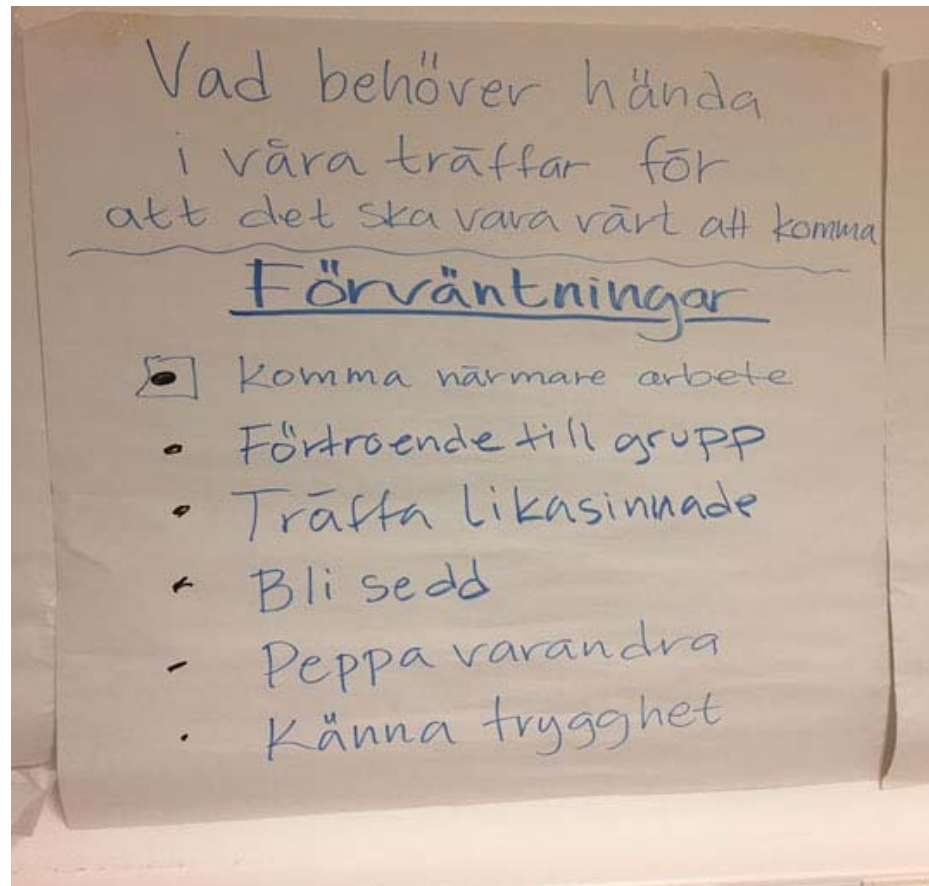 Vad behöver hända
i våra träffar för
att det ska vara värt att komma
Förväntningar
• Komma närmare arbete
• Förtroende till grupp
• Träffa likasinnade
- Bli sedd
- Peppa varandra
• Känna trygghet